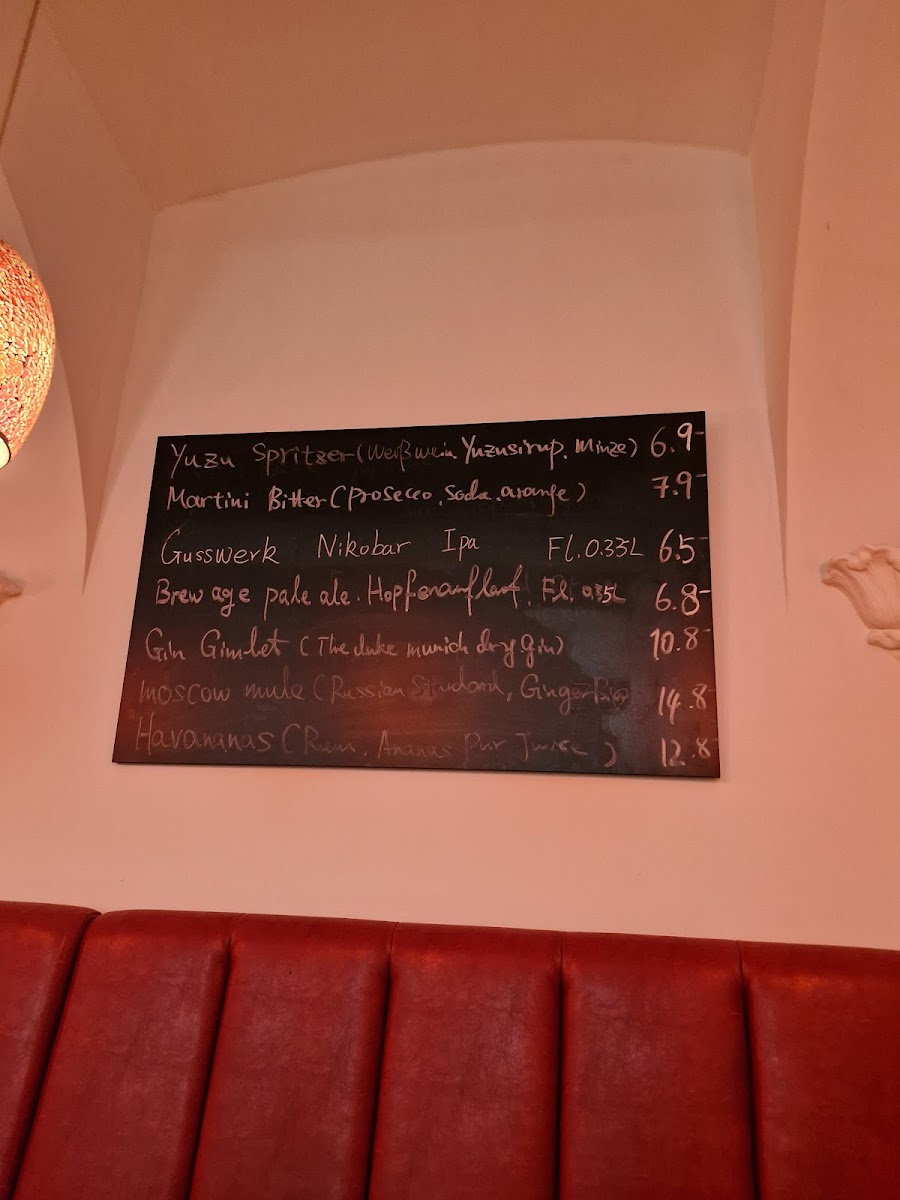 Yuzu Spritzer (Weißwein, Yuzusirup, Minze) 6.9-
Martini Bitter (Prosecco, Soda, orange) 7.9-
Gusswerk Nikobar Ipa Fl. 0.33L 6.5-
Brew age pale ale. Hopfenauflauf, Fl. 0.35L 6.8-
Gin Gimlet (The duke munich dry gin) 10.8-
Moscow mule (Russian Standard, Ginger Bier 14.8-
Havananas (Rum, Ananas pur Juice) 12.8-